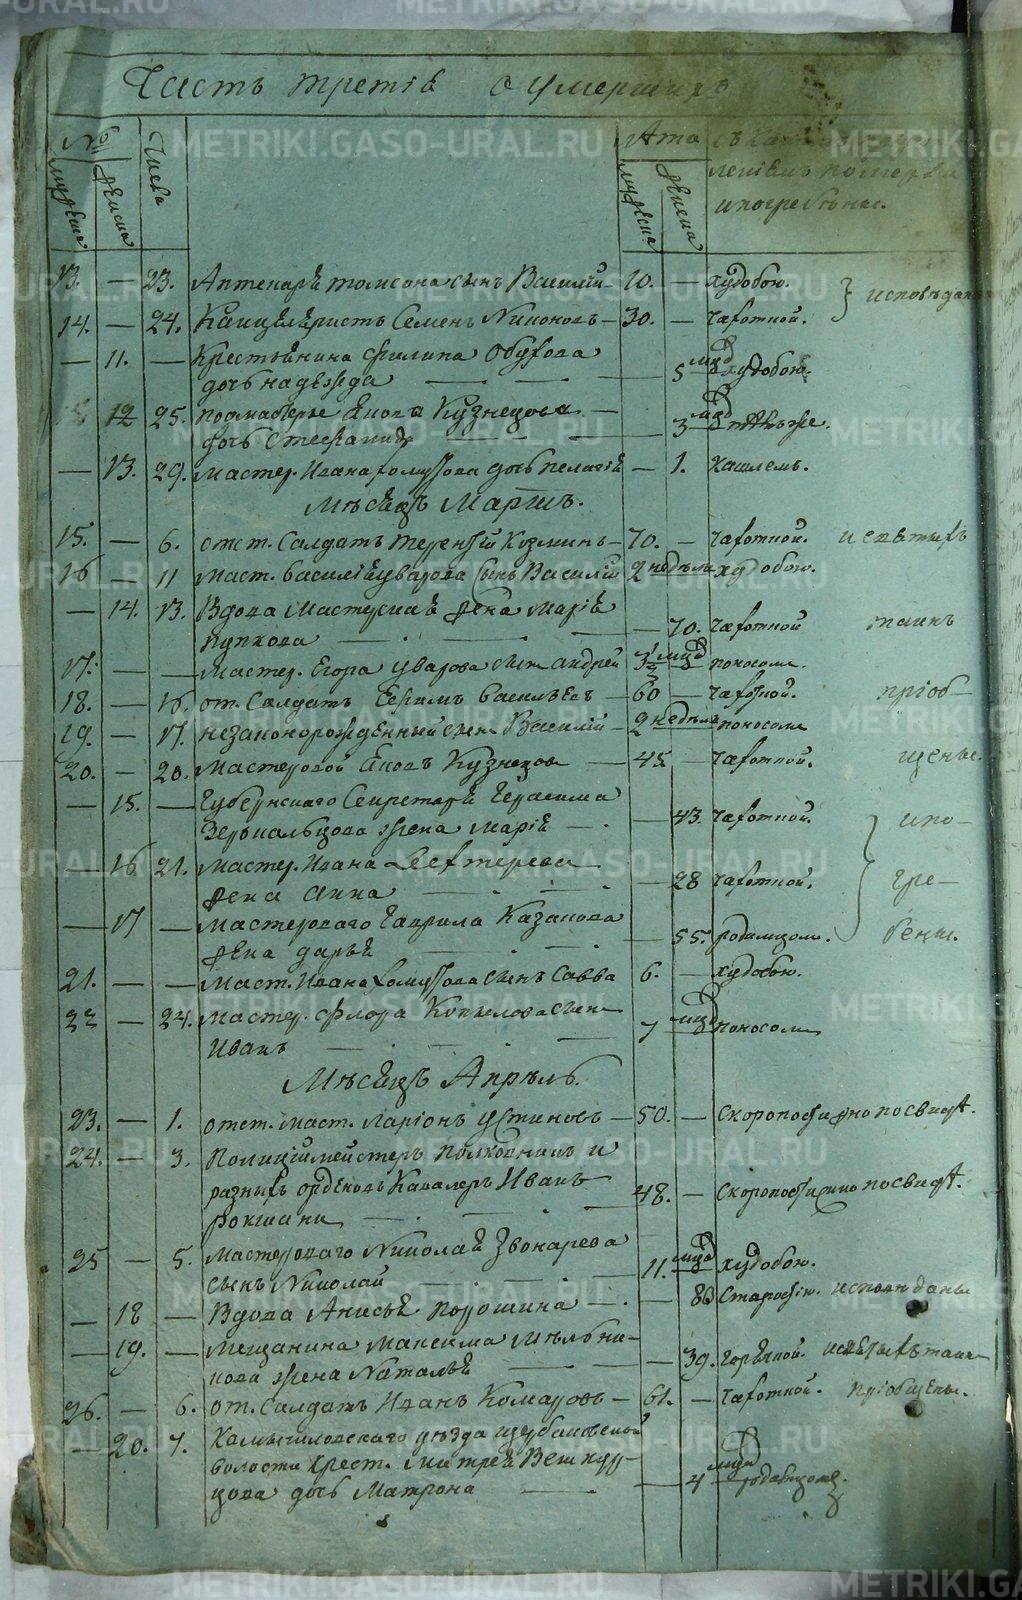 Часть третія О умершихъ
№
мужска
женска
Числа
Лѣта
мужска
женска
погребены.
13. — 23. Аптекаря Томсона сынъ Василій — 10. — худобою.
исповѣданы
14. — 24. Канцеляристъ Семенъ Никоновъ — 30. — чахотной.
— 11. — Крестьянина Филипа Обухова
дочь надежда — — — 5 мцд худобою.
12 25. Кузнецова —
дочь Стефанида — — 3 мцд
— 13. 29. мастер. Ивана дочь пелагія — 1. кашлемъ.
Мѣсяцъ Мартъ.
15. — 6. отст. Салдатъ терентій Козминъ — 70. — чахотной. и святыхъ
16 — 11 маст. василія уварова сынъ Василій 2 недѣли худобою.
— 14. 13. Вдова Мастерская жена Марія
пупкова — . — — 70. чахотной таинъ
17. — — мастер. Егора уварова сынъ андрей 3 мцд поносомъ.
18. — 16. от. Салдатъ Ефимъ васильевъ — 60 — чахотной. пріоб-
19. — 17. незаконорожденный сынъ Василій — 2 недѣли поносомъ
20. — 20. Мастеровой Яковъ Кузнецовъ — 45 — чахотной. щены.
— 15. — Губернскаго Секретаря Герасима
Зерькальцова жена марія — . — 43. чахотной. и по-
— 16 21. мастер. Ивана
жена анна — . — — 28 чахотной. гре-
— 17 — мастероваго Гаврила Казакова
жена дарья — . — — 55. родимцомъ. бены.
21. — — маст. Ивана сынъ Савва 6. — худобою.
22 — 24. мастер. Флора Копылова сынъ
Иванъ — . — . — 7 мцд поносомъ
Мѣсяцъ Апрѣль.
23. — 1. отст. маст. Ларіонъ устиновъ — 50. — Скоропостижно по свидѣт.
24. — 3. Полицiймейстеръ полковникъ и
разныхъ орденовъ Кавалеръ Иванъ 48. — Скоропостижно по свидѣт.
рокшинъ — . —
25 — 5. Мастероваго Николая Звонарева
сынъ Николай — . — 11. мцд худобою.
— 18 — Вдова Анисья порошина — . — 80 Старостію. исповѣданы
— 19. — мещанина максима Мѣльни-
кова жена Наталья — — 39. горячкой. и святыхъ таин
26. — 6. от. Салдатъ Иванъ Комаровъ — 61. — чахотной. пріобщены.
— 20. 7. Камышловскаго уѣзда щербаковской
волости крест. митрея
дочь Матрона — — 4 мцд родимцомъ.
METRIKI.GASO-URAL.RU